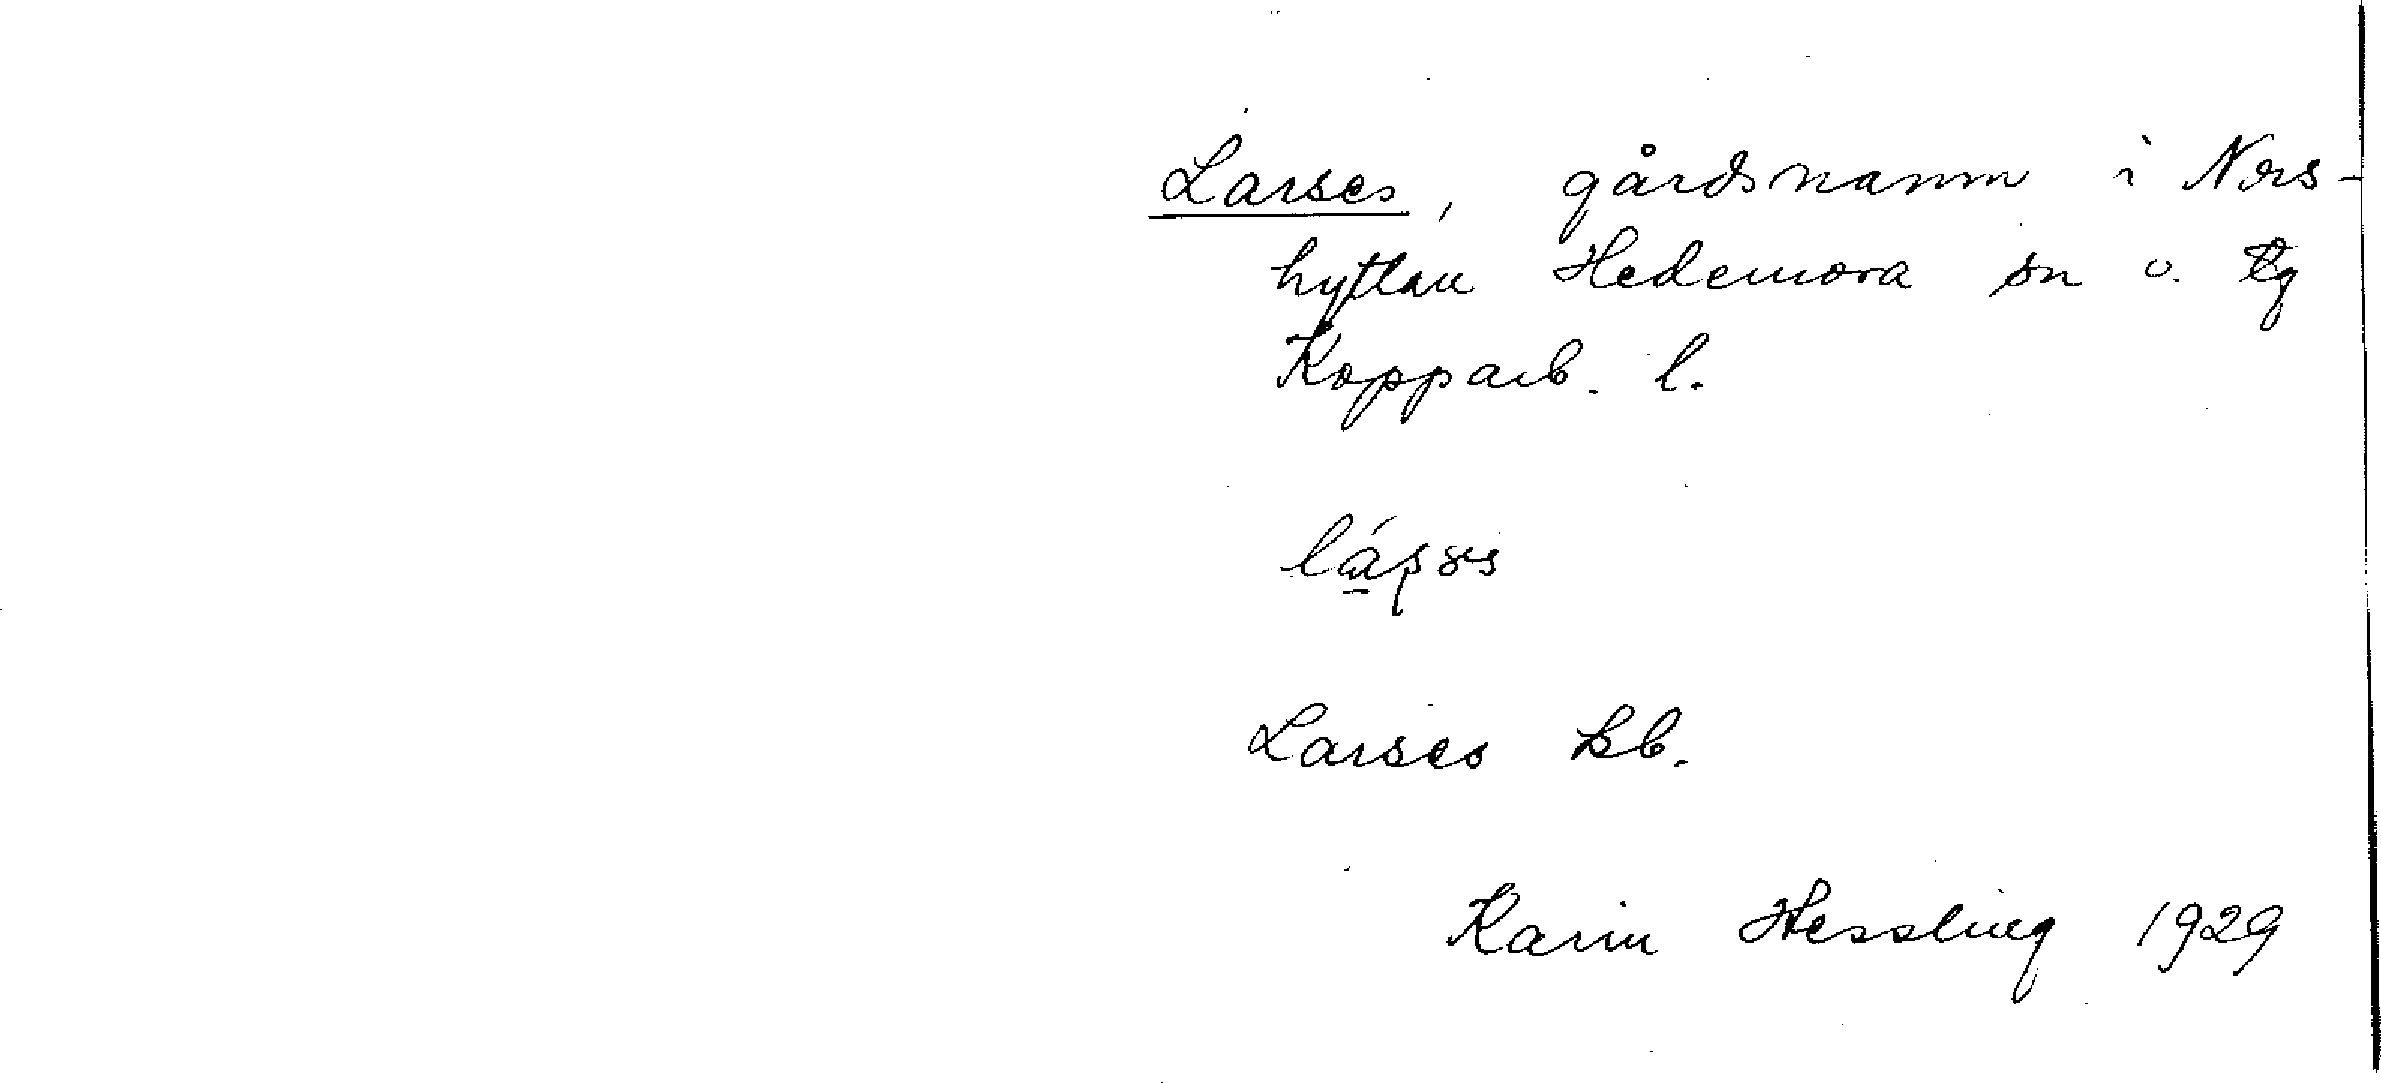 Larses, gårdsnamn i Nors-
hyttan Hedemora sn o. tg
Kopparb. l.
Larses kb.
Karin Hessling 1929